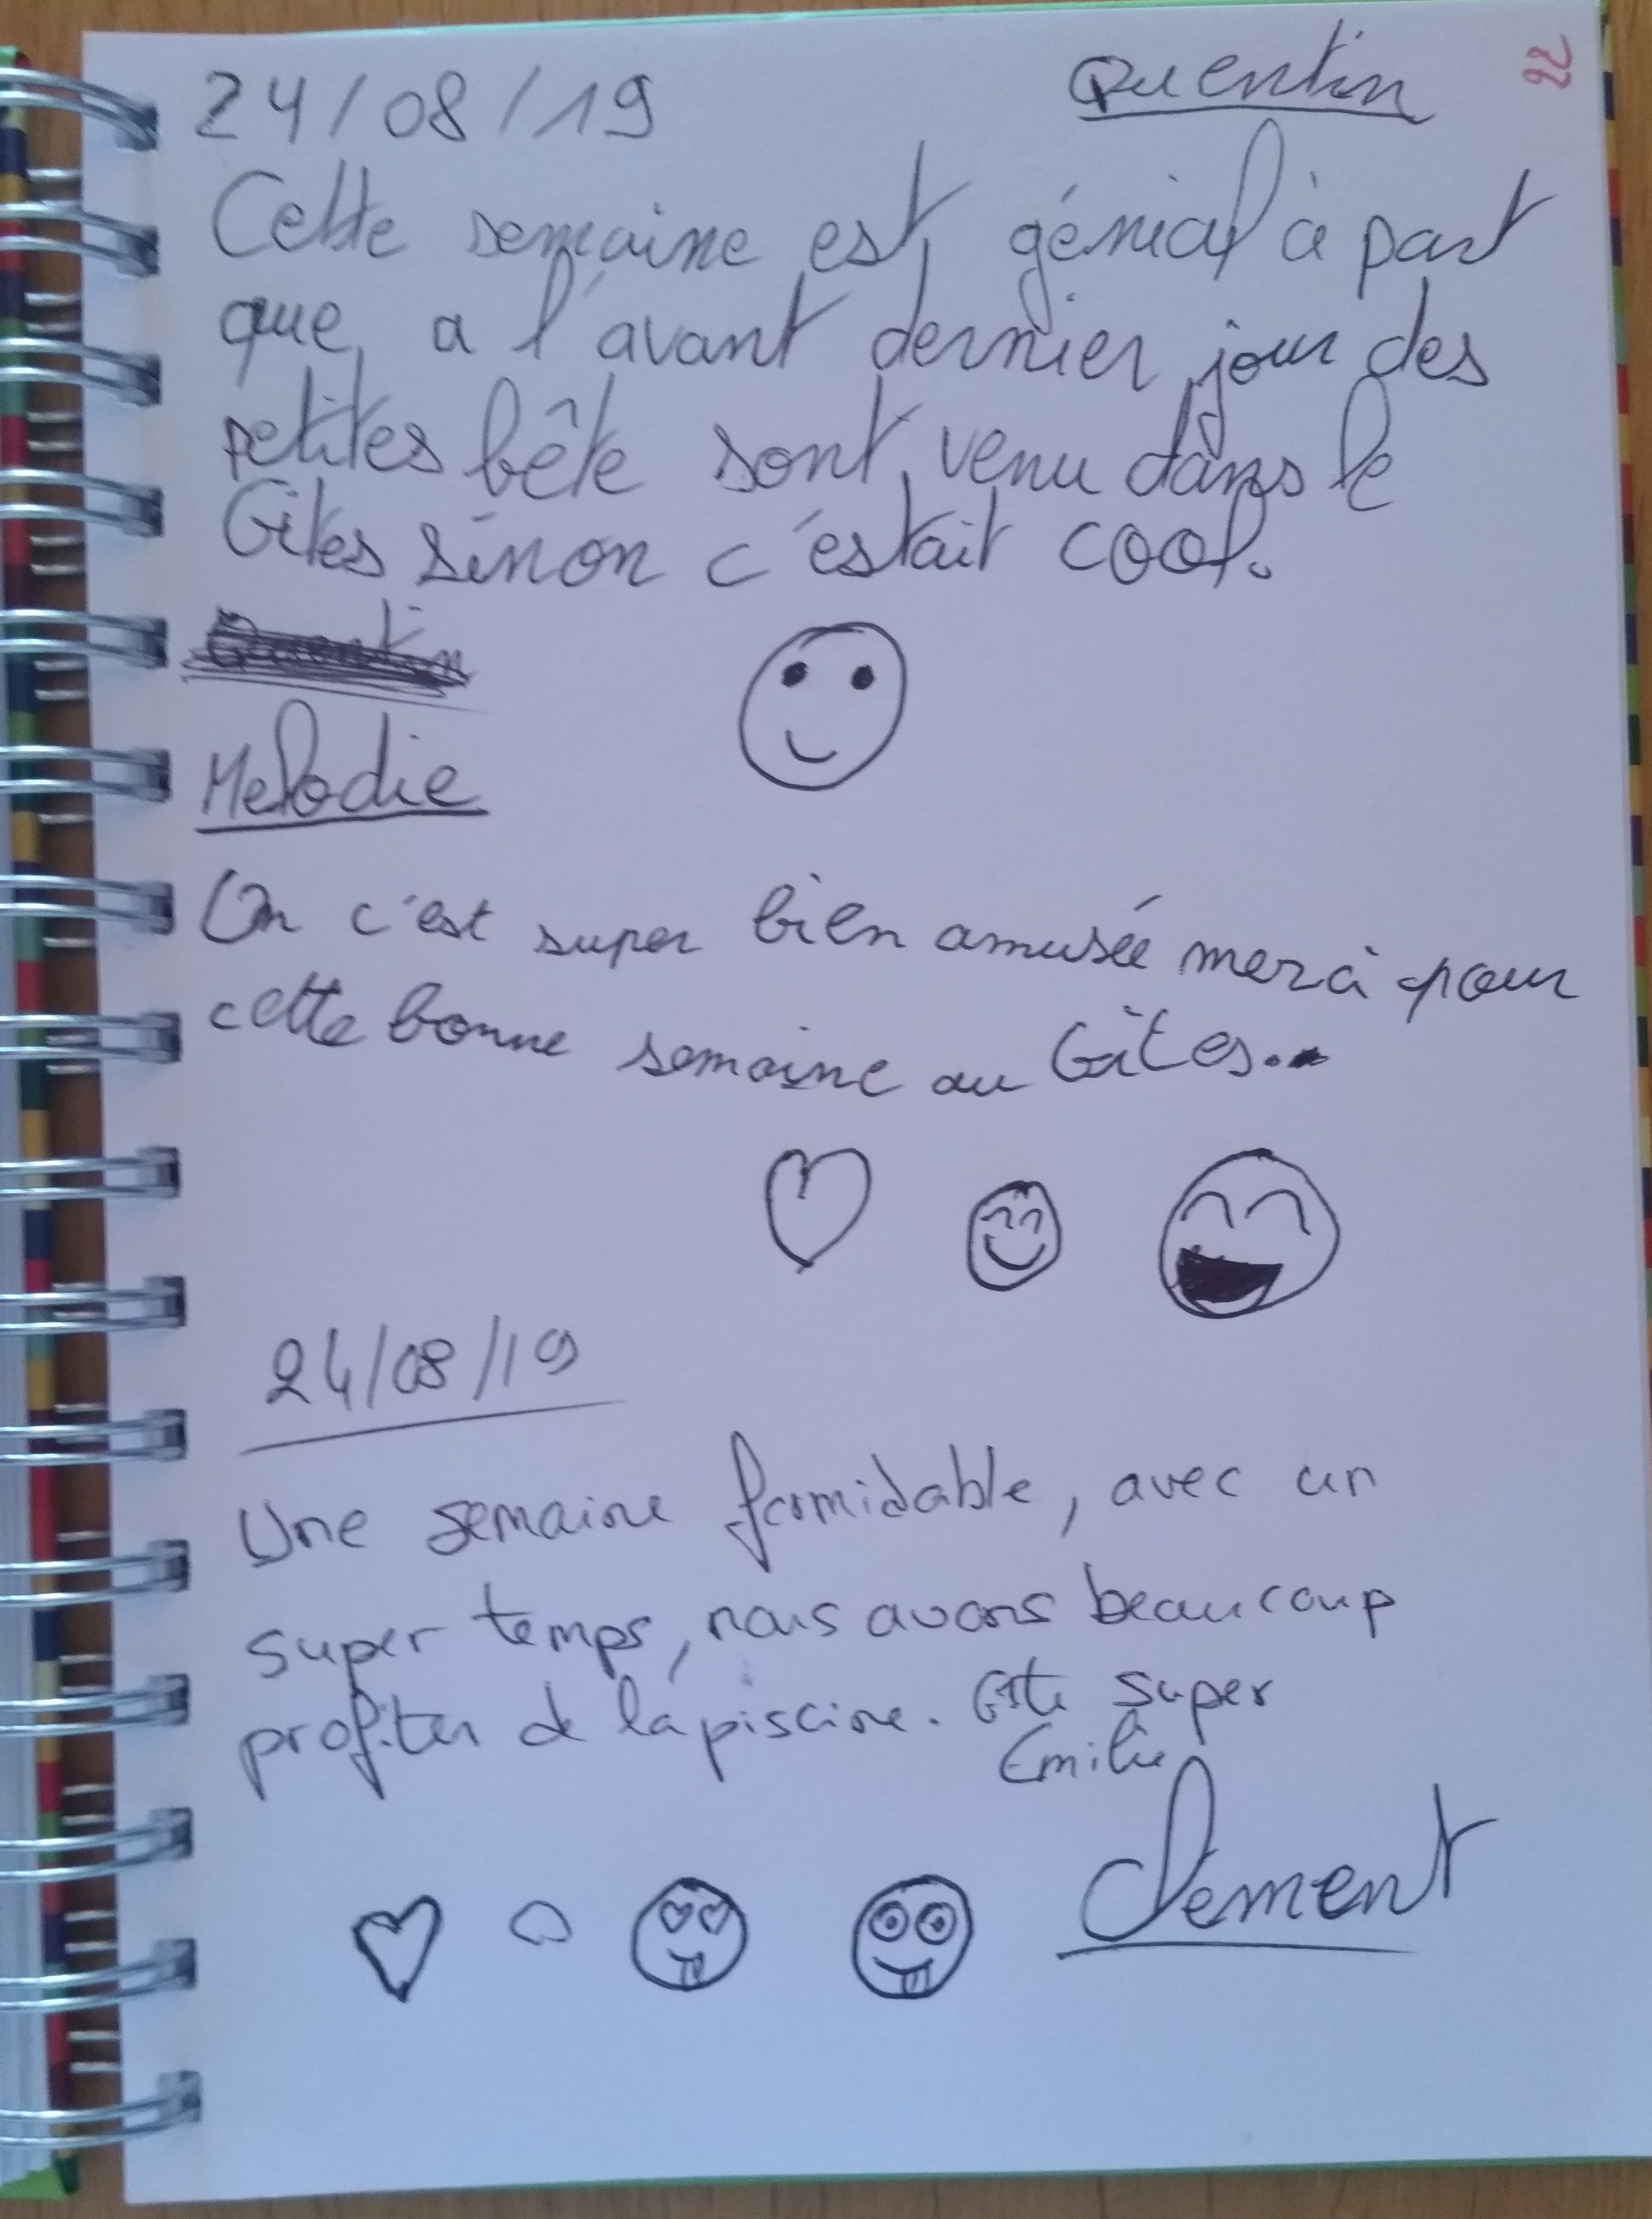 22
24/08/19 Quentin
Cette semaine est génial à part
que a l'avant dernier jour des
petites bête sont venu dans le
Gîtes sinon c'estait cool.
Melodie
On c'est super bien amusée merci pour
cette bonne semaine au Gîtes..
24/08/19
Une semaine formidable, avec un
super temps, nous avons beaucoup
profiter de la piscine. Gîte super
Emilie
Clement